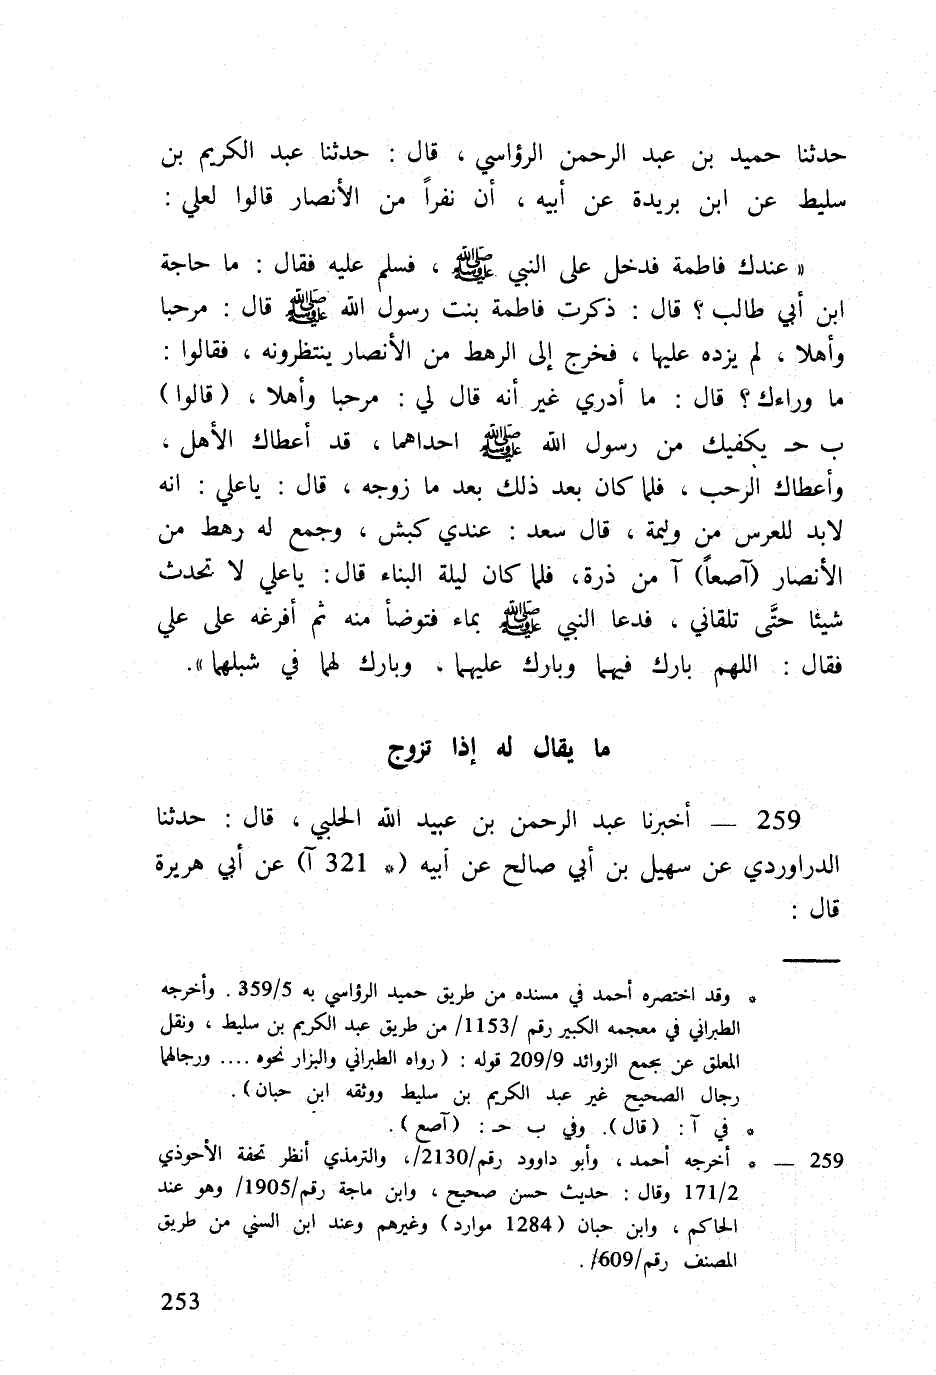 حدثنا حميد بن عبد الرحمن الرؤاسي ، قال : حدثنا عبد الكريم بن
سليط عن ابن بريدة عن أبيه ، أن نفراً من الأنصار قالوا لعلي :
« عندك فاطمة فدخل على النبي ﷺ ، فسلم عليه فقال : ما حاجة
ابن أبي طالب ؟ قال : ذكرت فاطمة بنت رسول الله ﷺ قال : مرحبا
وأهلا ، لم يزده عليها ، فخرج إلى الرهط من الأنصار ينتظرونه ، فقالوا :
ما وراءك ؟ قال : ما أدري غير أنه قال لي : مرحبا وأهلا ، ( قالوا )
ب حـ يكفيك من رسول الله ﷺ احداهما ، قد أعطاك الأهل ،
وأعطاك الرحب ، فلما كان بعد ذلك بعد ما زوجه ، قال : ياعلي : انه
لابد للعرس من وليمة ، قال سعد : عندي كبش ، وجمع له رهط من
الأنصار (آصعاً) آ من ذرة، فلما كان ليلة البناء قال: ياعلي لا تحدث
شيئا حتَّى تلقاني ، فدعا النبي ﷺ بماء فتوضأ منه ثم أفرغه على علي
فقال : اللهم بارك فيهما وبارك عليهما . وبارك لهما في شبلهما ».
ما يقال له إذا تزوج
259 — أخبرنا عبد الرحمن بن عبيد الله الحلبي ، قال : حدثنا
الدراوردي عن سهيل بن أبي صالح عن أبيه (* 321 آ) عن أبي هريرة
قال :
* وقد اختصره أحمد في مسنده من طريق حميد الرؤاسي به 359/5 . وأخرجه
الطبراني في معجمه الكبير رقم /1153/ من طريق عبد الكريم بن سليط ، ونقل
المعلق عن مجمع الزوائد 209/9 قوله : ( رواه الطبراني والبزار نحوه .... ورجالهما
رجال الصحيح غير عبد الكريم بن سليط ووثقه ابن حبان ) .
* في آ : ( قال ). وفي ب حـ : ( آصع ) .
259 — * أخرجه أحمد ، وأبو داوود رقم/2130/، والترمذي أنظر تحفة الأحوذي
171/2 وقال : حديث حسن صحيح ، وابن ماجة رقم/1905/ وهو عند
الحاكم ، وابن حبان ( 1284 موارد ) وغيرهم وعند ابن السني من طريق
المصنف رقم/609/ .
253